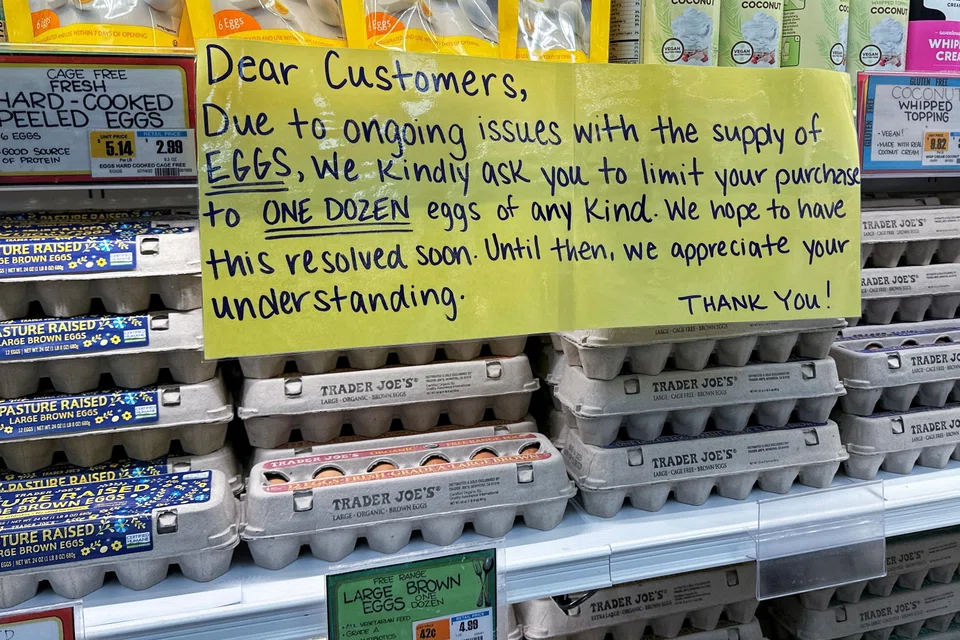 6 Eggs
COCONUT
VEGAN
WHIPPED TOPPING
COCONUT
VEGAN
COCONUT
VEGAN
WHIP
CREA
CAGE FREE
FRESH
HARD-COOKED
PEELED EGGS
6 EGGS
-GOOD SOURCE
OF PROTEIN
UNIT PRICE
5.14
RETAIL PRICE
2.99
EGGS HARD COOKED CAGE FREE
EGGS
Dear Customers,
Due to ongoing issues with the supply of
EGGS, We kindly ask you to limit your purchase
to ONE DOZEN eggs of any kind. We hope to have
this resolved soon. Until then, we appreciate your
understanding.
THANK YOU!
GLUTEN FREE
COCONUT
WHIPPED
TOPPING
- VEGAN!
- MADE WITH REAL
COCONUT CREAM
8.82
PASTURE RAISED
GE BROWN EGGS
ASTURE RAISED
LARGE BROWN EGGS
PASTURE RAISED
LARGE BROWN EGGS
PASTURE RAISED
URE RAISED
TURE RAISED
BROWN EGGS
TRADER JOE'S
LARGE · ORGANIC · BROWN EGGS
TRADER JOE'S
ORGANIC FREE RANGE
12 EGGS FRESH GRADE A LARGE BROWN
TRADER JOE'S
LARGE · ORGANIC · BROWN EGGS
LARGE · CAGE FREE · BROWN EGGS
TRADER JOE'S
LARGE · CAGE FREE · BROWN EGGS
TRADER JOE'S
LARGE · CAGE FREE · BROWN EGGS
TRADER JOE'S
LARGE · CAGE FREE · BROWN EGGS
TRADER JOE'S
LARGE · CAGE FREE · BROWN EGGS
TRADER JO
TRADER JO
FREE RANGE
LARGE BROWN
EGGS ONE DOZEN
- ALL VEGETARIAN FEED
- GRADE A
42¢
4.99
TRADER JOE'S
TRADER JOE'S
TRADER JOE'S